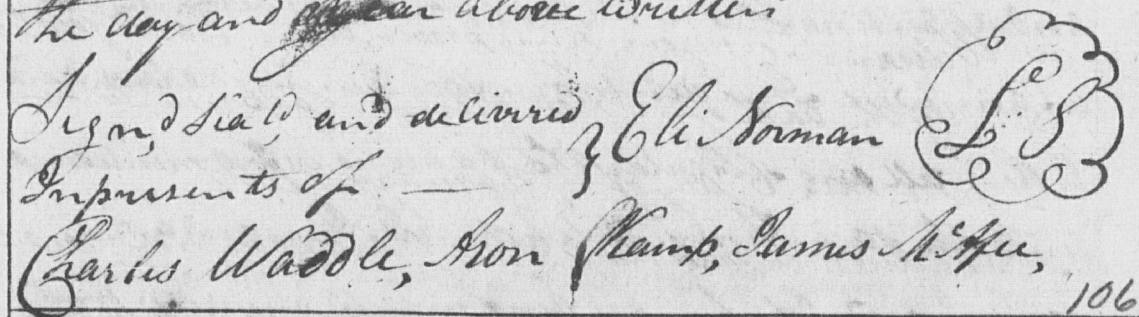 the day and year above written
Signd Seald and delivered } Eli Norman L. S
Inpresents of —
Charles Waddle, Aron Kamp, James McAfee,
106